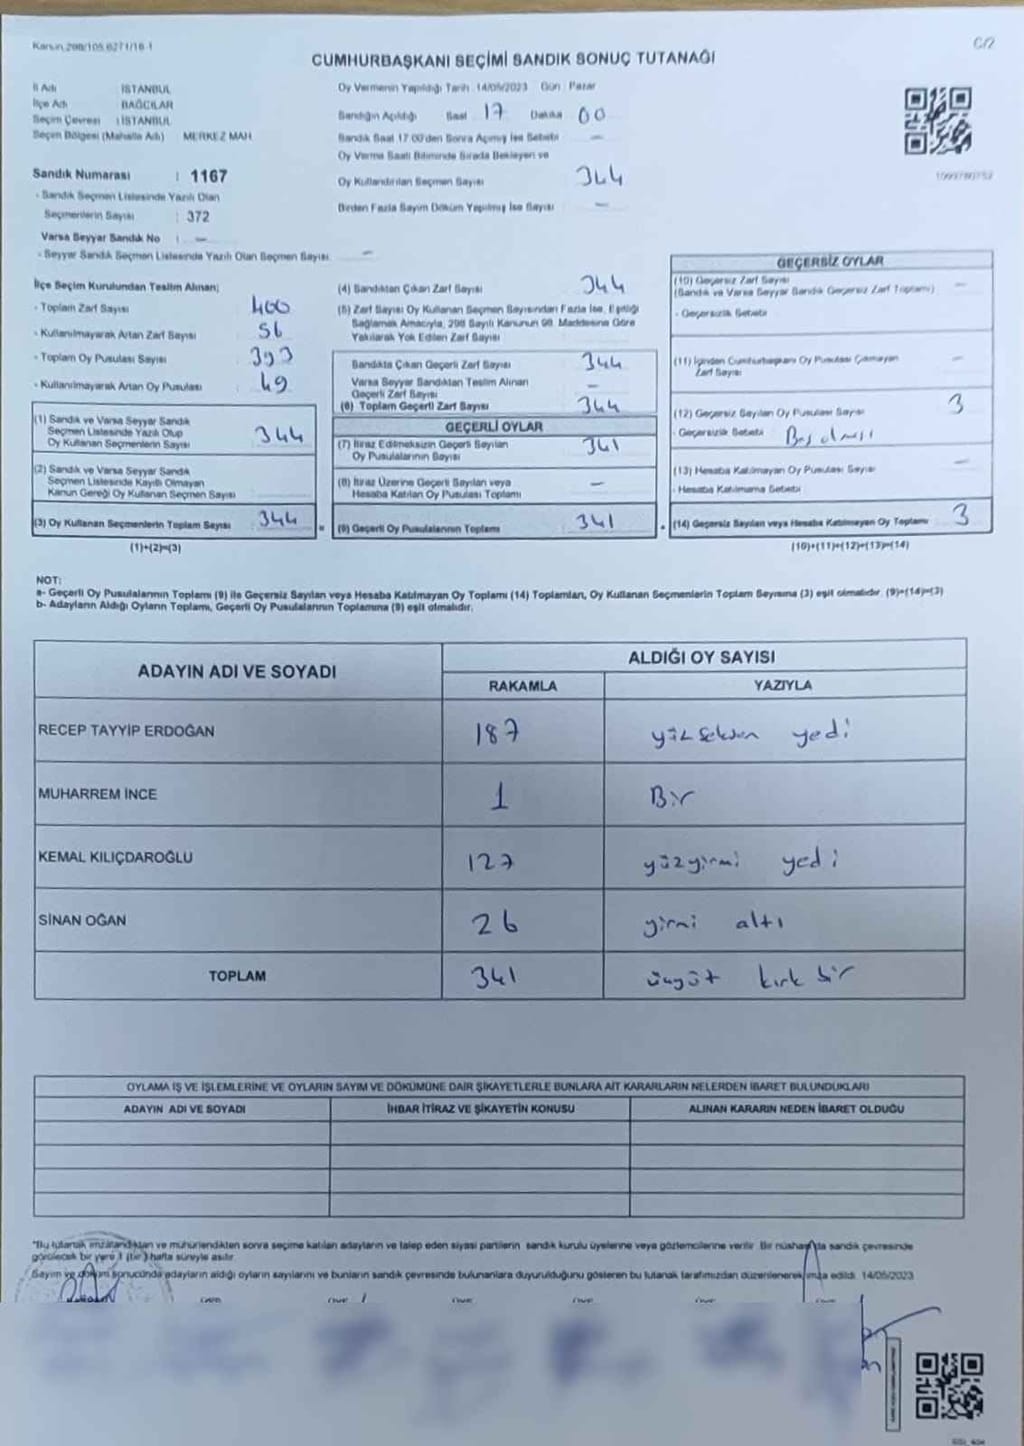 Kanun 298/105,6271/16-1
C/2
CUMHURBAŞKANI SEÇİMİ SANDIK SONUÇ TUTANAĞI
İl Adı : İSTANBUL
İlçe Adı : BAĞCILAR
Seçim Çevresi : İSTANBUL
Seçim Bölgesi (Mahalle Adı) : MERKEZ MAH.
Sandık Numarası : 1167
- Sandık Seçmen Listesinde Yazılı Olan
Seçmenlerin Sayısı : 372
Varsa Seyyar Sandık No : —
- Seyyar Sandık Seçmen Listesinde Yazılı Olan Seçmen Sayısı: —
Oy Vermenin Yapıldığı Tarih : 14/05/2023 Gün : Pazar
Sandığın Açıldığı Saat : 17 Dakika : 00
Sandık Saat 17:00'den Sonra Açılmış İse Sebebi : —
Oy Verme Saati Bitiminde Sırada Bekleyen ve
Oy Kullandırılan Seçmen Sayısı : 344
Birden Fazla Sayım Döküm Yapılmış İse Sayısı : —
1099780752
İlçe Seçim Kurulundan Teslim Alınan;
- Toplam Zarf Sayısı : 400
- Kullanılmayarak Artan Zarf Sayısı : 56
- Toplam Oy Pusulası Sayısı : 393
- Kullanılmayarak Artan Oy Pusulası : 49
(1) Sandık ve Varsa Seyyar Sandık
Seçmen Listesinde Yazılı Olup
Oy Kullanan Seçmenlerin Sayısı : 344
(2) Sandık ve Varsa Seyyar Sandık
Seçmen Listesinde Kayıtlı Olmayan
Kanun Gereği Oy Kullanan Seçmen Sayısı :
(3) Oy Kullanan Seçmenlerin Toplam Sayısı : 344
(1)+(2)=(3)
(4) Sandıktan Çıkan Zarf Sayısı : 344
(5) Zarf Sayısı Oy Kullanan Seçmen Sayısından Fazla İse, Eşitliği
Sağlamak Amacıyla, 298 Sayılı Kanunun 98. Maddesine Göre
Yakılarak Yok Edilen Zarf Sayısı
Sandıkta Çıkan Geçerli Zarf Sayısı : 344
Varsa Seyyar Sandıktan Teslim Alınan
Geçerli Zarf Sayısı : —
(6) Toplam Geçerli Zarf Sayısı : 344
GEÇERLİ OYLAR
(7) İtiraz Edilmeksizin Geçerli Sayılan
Oy Pusulalarının Sayısı : 341
(8) İtiraz Üzerine Geçerli Sayılan veya
Hesaba Katılan Oy Pusulası Toplamı : —
(9) Geçerli Oy Pusulalarının Toplamı : 341
GEÇERSİZ OYLAR
(10) Geçersiz Zarf Sayısı : —
(Sandık ve Varsa Seyyar Sandık Geçersiz Zarf Toplamı)
- Geçersizlik Sebebi :
(11) İçinden Cumhurbaşkanı Oy Pusulası Çıkmayan
Zarf Sayısı : —
(12) Geçersiz Sayılan Oy Pusulası Sayısı : 3
- Geçersizlik Sebebi : Boş olması
(13) Hesaba Katılmayan Oy Pusulası Sayısı : —
- Hesaba Katılmama Sebebi :
(14) Geçersiz Sayılan veya Hesaba Katılmayan Oy Toplamı : 3
(10)+(11)+(12)+(13)=(14)
NOT:
a- Geçerli Oy Pusulalarının Toplamı (9) ile Geçersiz Sayılan veya Hesaba Katılmayan Oy Toplamı (14) Toplamları, Oy Kullanan Seçmenlerin Toplam Sayısına (3) eşit olmalıdır. (9)+(14)=(3)
b- Adayların Aldığı Oyların Toplamı, Geçerli Oy Pusulalarının Toplamına (9) eşit olmalıdır.
ADAYIN ADI VE SOYADI
ALDIĞI OY SAYISI
RAKAMLA YAZIYLA
RECEP TAYYİP ERDOĞAN 187 yüzseksen yedi
MUHARREM İNCE 1 Bir
KEMAL KILIÇDAROĞLU 127 yüzyirmi yedi
SİNAN OĞAN 26 yirmi altı
TOPLAM 341 üçyüz kırk bir
OYLAMA İŞ VE İŞLEMLERİNE VE OYLARIN SAYIM VE DÖKÜMÜNE DAİR ŞİKAYETLERLE BUNLARA AİT KARARLARIN NELERDEN İBARET BULUNDUKLARI
ADAYIN ADI VE SOYADI İHBAR İTİRAZ VE ŞİKAYETİN KONUSU ALINAN KARARIN NEDEN İBARET OLDUĞU
"Bu tutanak imzalandıktan ve mühürlendikten sonra seçime katılan adayların ve talep eden siyasi partilerin sandık kurulu üyelerine veya gözlemcilerine verilir. Bir nüshası da sandık çevresinde
görülecek bir yere 1 (bir) hafta süreyle asılır.
Sayım ve döküm sonucunda adayların aldığı oyların sayılarını ve bunların sandık çevresinde bulunanlara duyurulduğunu gösteren bu tutanak tarafımızdan düzenlenerek imza edildi. 14/05/2023